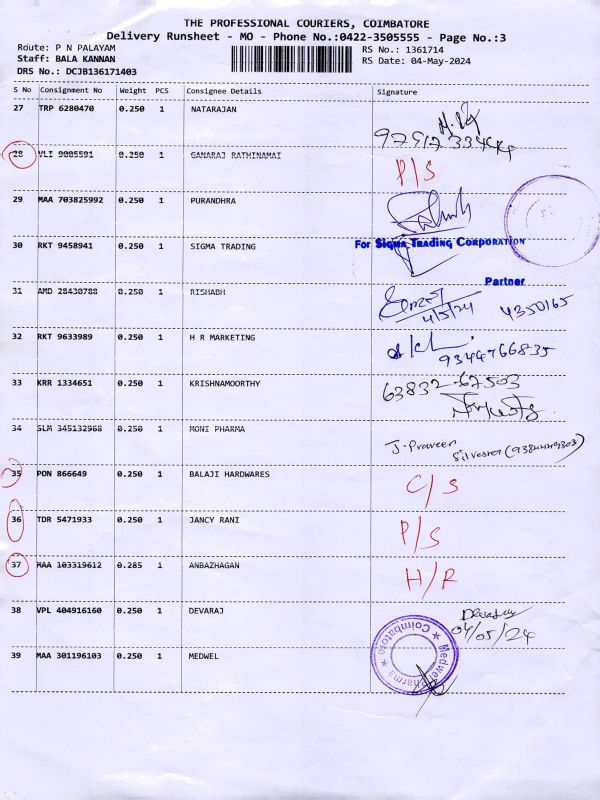 THE PROFESSIONAL COURIERS, COIMBATORE
Delivery Runsheet - MO - Phone No.:0422-3505555 - Page No.:3
Route: P N PALAYAM
RS No.: 1361714
Staff: BALA KANNAN
RS Date: 04-May-2024
DRS No.: DCJB136171403
S No Consignment No Weight PCS Consignee Details Signature
27 TRP 6280470 0.250 1 NATARAJAN
28 VLI 9005591 0.250 1 GANARAJ RATHINAMAI P/S
29 MAA 703825992 0.250 1 PURANDHRA
30 RKT 9458941 0.250 1 SIGMA TRADING For SIGMA TRADING CORPORATION
Partner
31 AMD 28430788 0.250 1 RISHABH 4/5/24 4350165
32 RKT 9633989 0.250 1 H R MARKETING 9344766835
33 KRR 1334651 0.250 1 KRISHNAMOORTHY 63832-67503
34 SLM 345132968 0.250 1 MONI PHARMA J. Praveen
Silvester
35 PON 866649 0.250 1 BALAJI HARDWARES C/S
36 TDR 5471933 0.250 1 JANCY RANI P/S
37 MAA 103319612 0.285 1 ANBAZHAGAN H/R
38 VPL 404916160 0.250 1 DEVARAJ 04/05/24
39 MAA 301196103 0.250 1 MEDWEL Medwel Pharma ★ Coimbatore ★